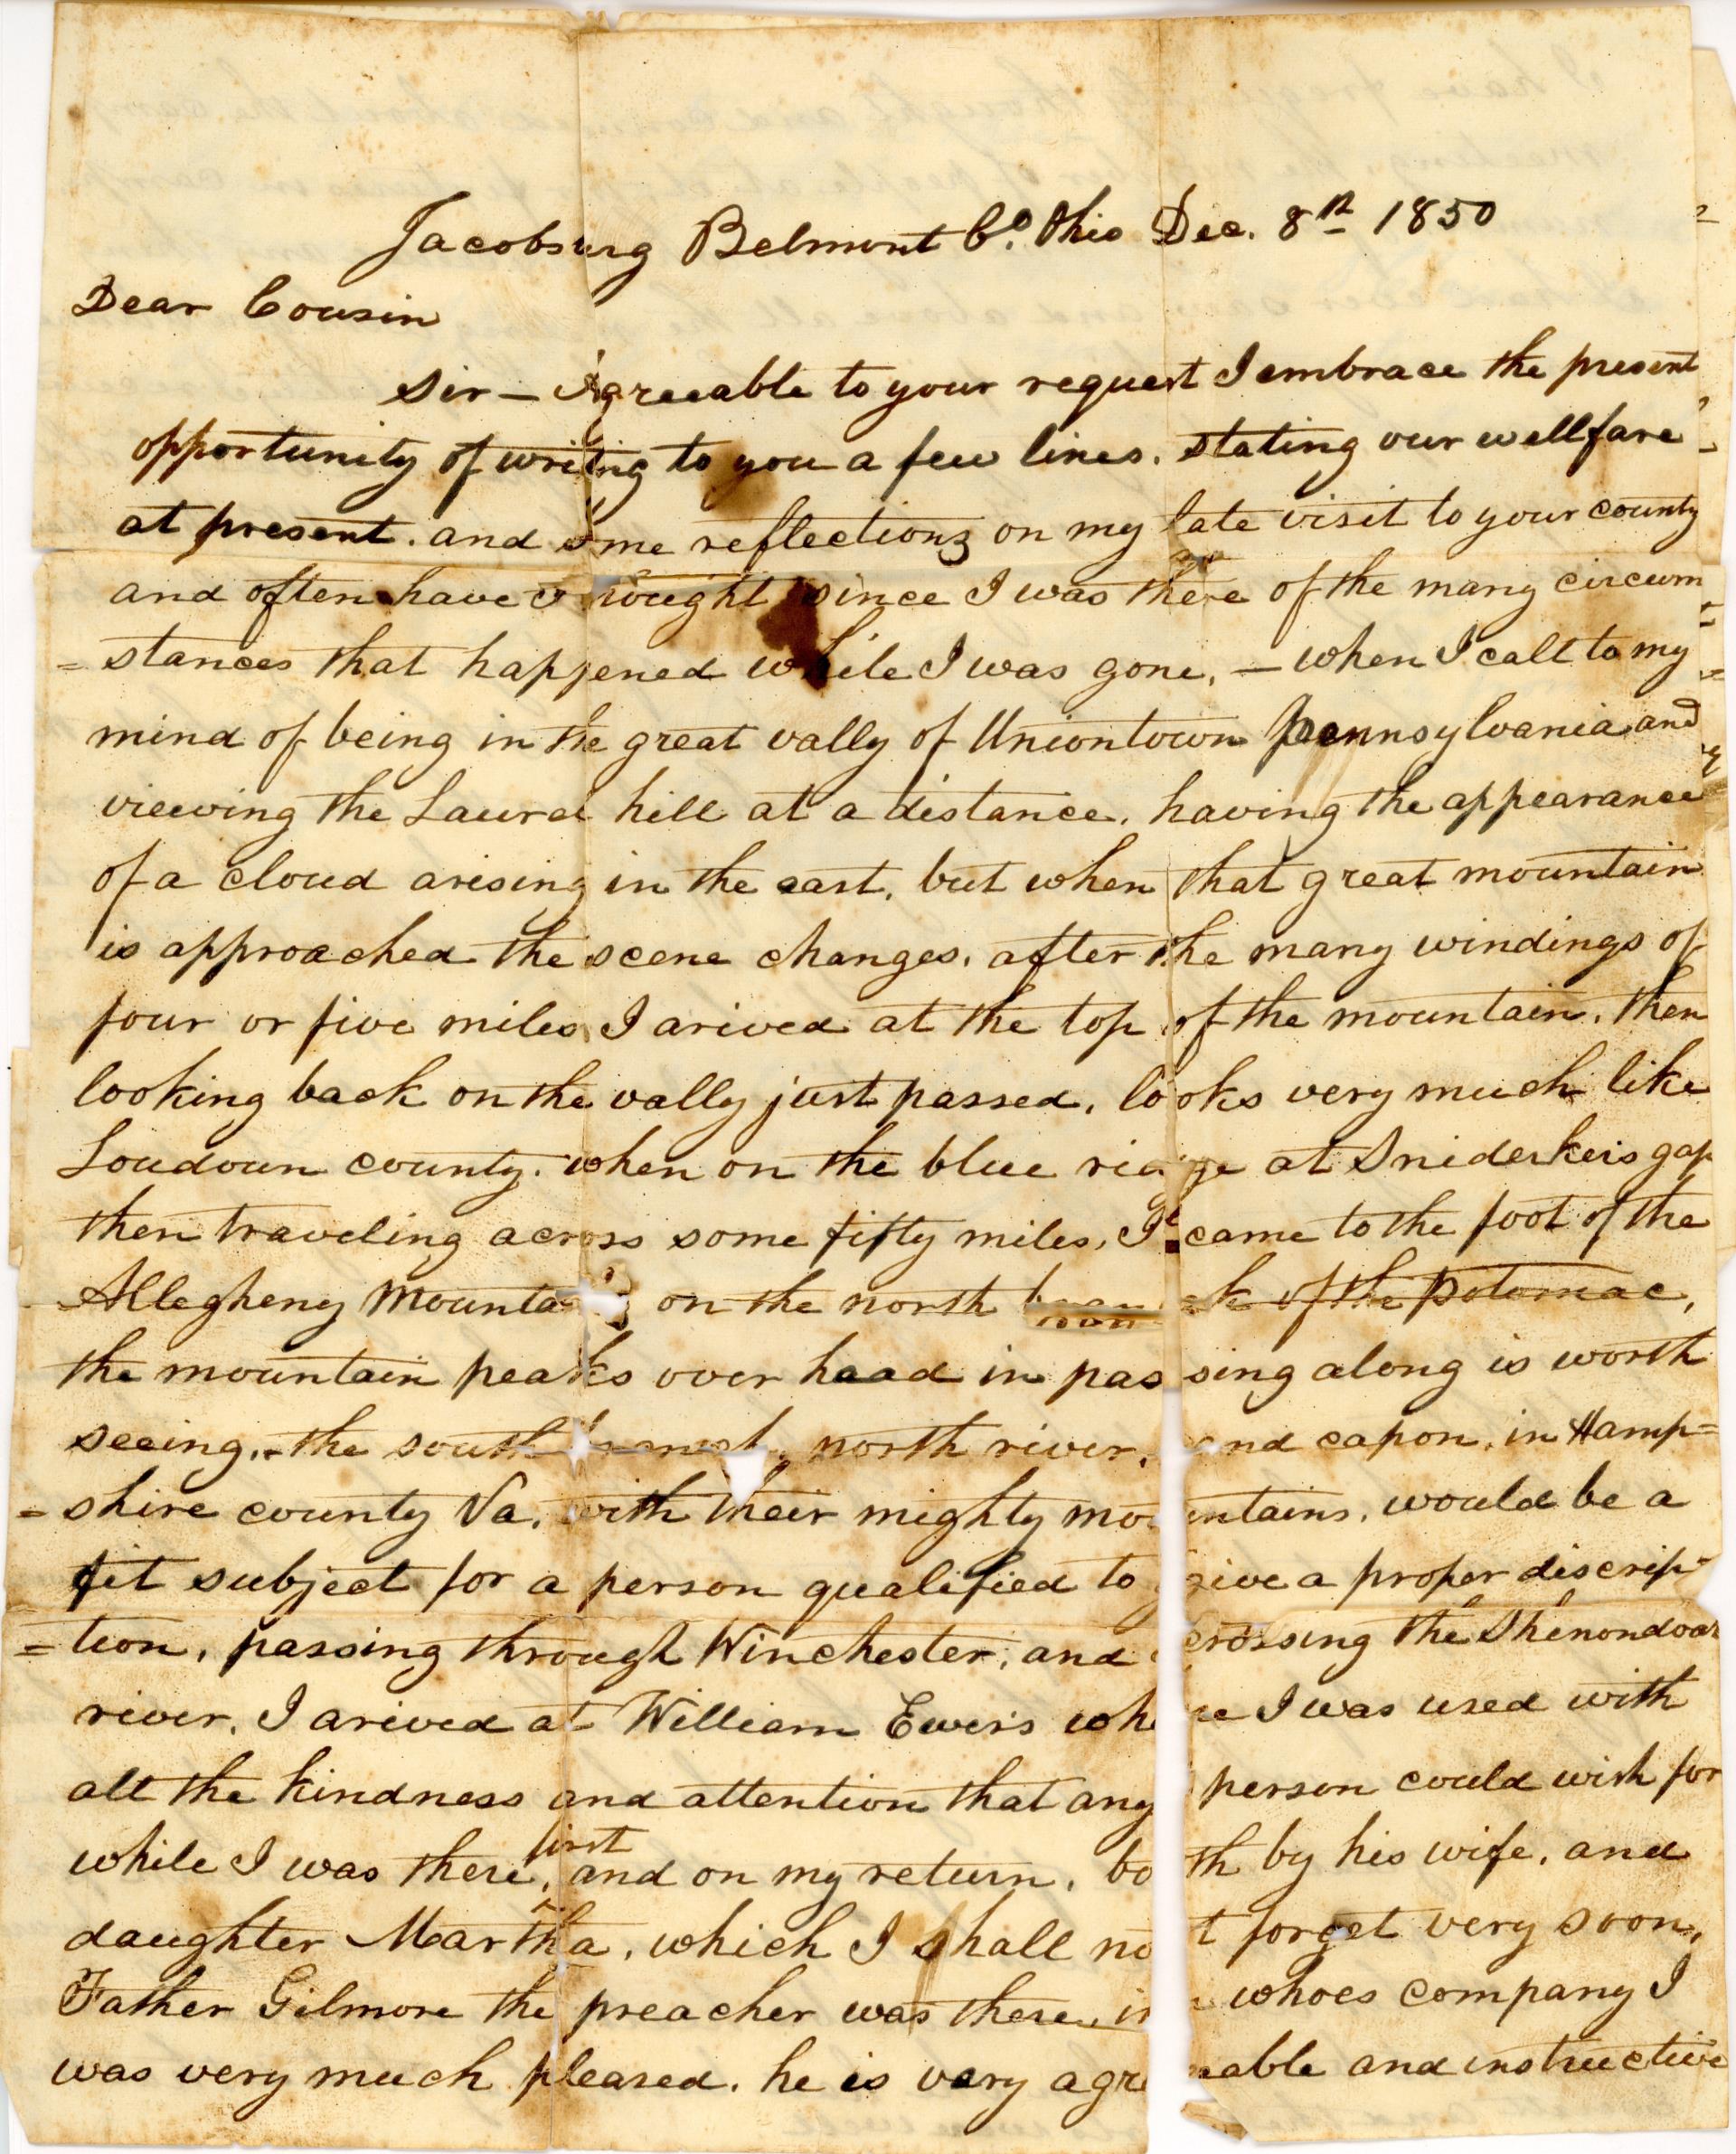 Jacobsburg Belmont Co. Ohio Dec. 8th 1850
Dear Cousin
Sir — Agreeable to your request I embrace the present
opportunity of writing to you a few lines. stating our wellfare
at present. and some reflections on my late visit to your county
and often have I thought since I was there of the many circum
= stances that happened while I was gone, — when I call to my
mind of being in the great vally of Uniontown Pennsylvania and
viewing the Laurel hill at a distance, having the appearance
of a cloud arising in the east, but when that great mountain
is approached the scene changes, after the many windings of
four or five miles I arived at the top of the mountain, then
looking back on the vally just passed, looks very much like
Loudoun county. when on the blue ridge at Snidekers gap
then traveling across some fifty miles, I came to the foot of the
Allegheny Mountains on the north of the Potomac,
the mountain peaks over head in passing along is worth
seeing, the south branch, north river, and capon, in Hamp=
= shire county Va. with their mighty mountains, would be a
fit subject for a person qualified to give a proper discrip-
= tion, passing through Winchester, and crossing the Shenondoar
river, I arived at William Ewers where I was used with
all the kindness and attention that any person could wish for
while I was there, first and on my return, both by his wife, and
daughter Martha, which I shall not forget very soon,
Father Gilmore the preacher was there, in whoes company I
was very much pleased. he is very agreeable and instructive